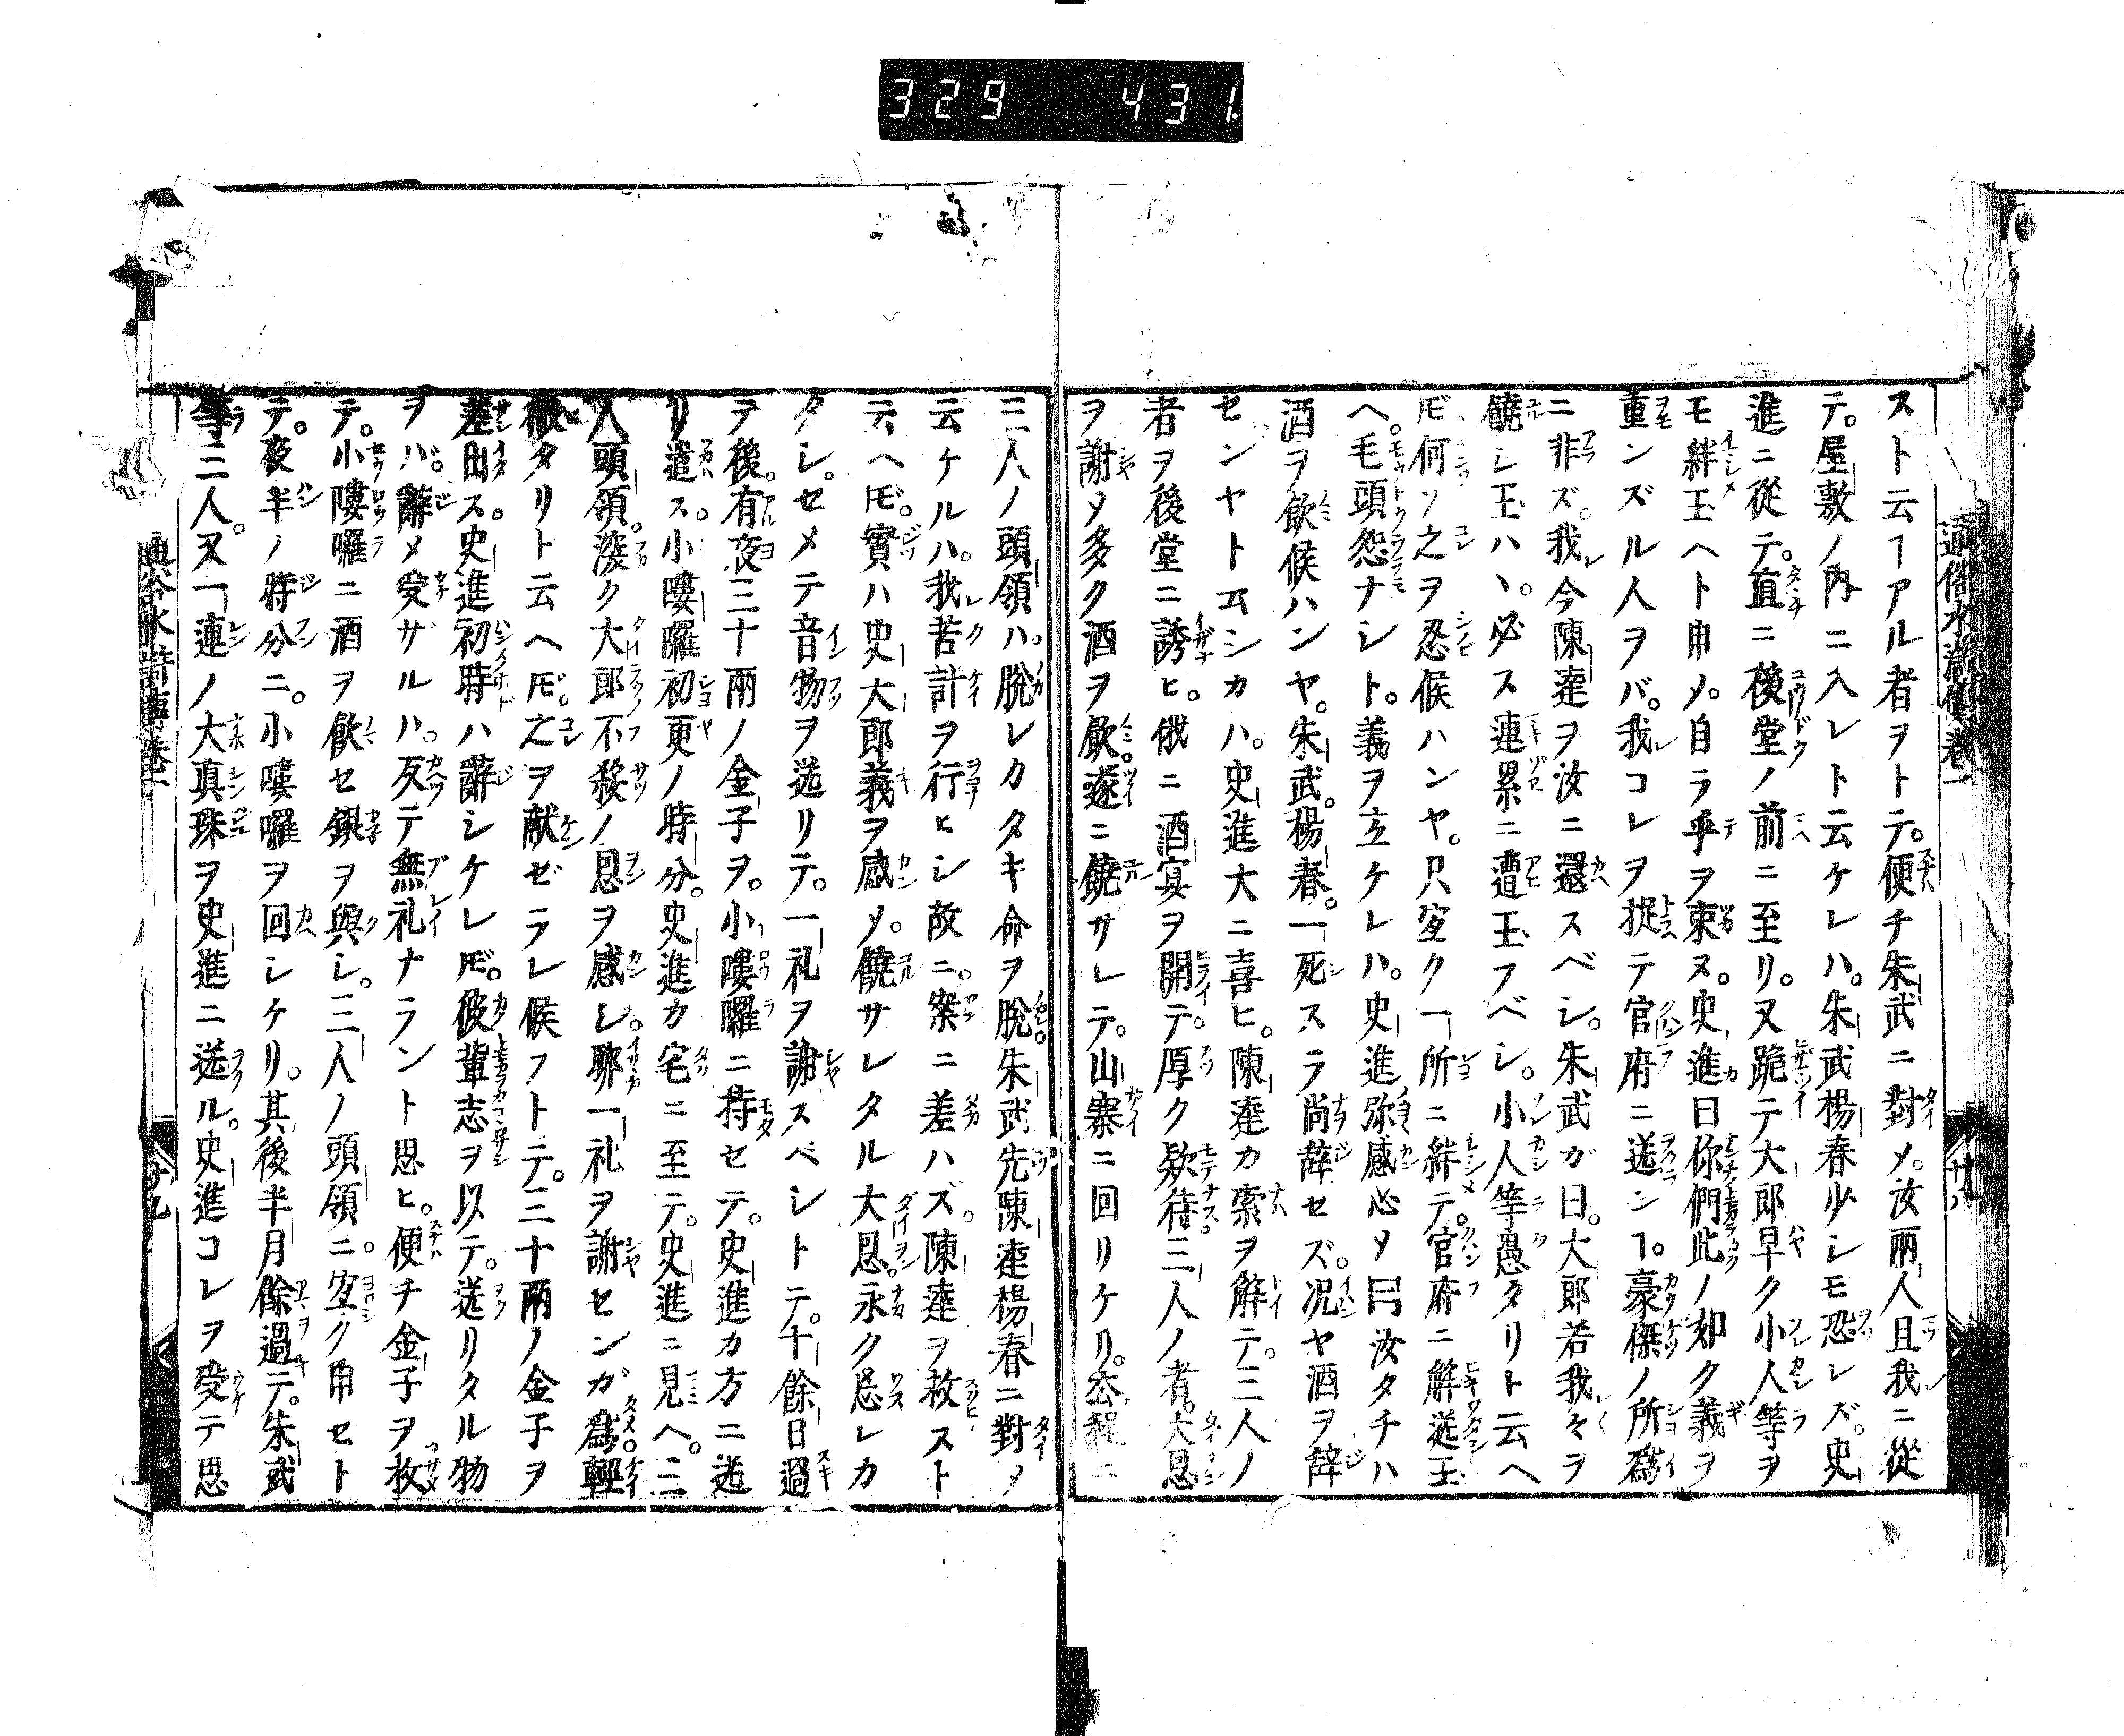 329 431
通俗水滸傳卷一
スト云ヿアル者ヲトテ。便チ朱武ニ對メ。汝兩人且我ニ從
テ。屋敷ノ內ニ入レト云ケレハ。朱武楊春少シモ恐レズ。史
進ニ從テ。直ニ後堂ノ前ニ至リ。又跪テ大郎早ク小人等ヲ
モ絆玉ヘト申メ。自ラ手ヲ束ヌ。史進曰你們此ノ如ク義ヲ
重ンズル人ヲバ。我コレヲ捉テ官府ニ送ンヿ。豪傑ノ所爲
ニ非ズ。我今陳達ヲ汝ニ還スベシ。朱武ガ曰。大郎若我々ヲ
饒シ玉ハヽ。必ス連累ニ遭玉フベシ。小人等愚タリト云ヘ
𪜈何ソ之ヲ忍候ハンヤ。只宜ク一所ニ絆テ。官府ニ解送玉
ヘ。毛頭怨ナシト。義ヲ立ケレハ。史進弥感心メ曰汝タチハ
酒ヲ飮候ハンヤ。朱武。楊春。一死スラ尚辭セズ。况ヤ酒ヲ辭
センヤト云シカハ。史進大ニ喜ヒ。陳達カ索ヲ解テ。三人ノ
者ヲ後堂ニ誘ヒ。俄ニ酒宴ヲ開テ。厚ク欵待三人ノ者。大恩
ヲ謝メ多ク酒ヲ飮。遂ニ饒サレテ。山寨ニ回リケリ。
三人ノ頭領ハ。脫レカタキ命ヲ脫。朱武先陳達楊春ニ對メ
云ケルハ。我苦計ヲ行ヒシ故ニ。案ニ差ハズ。陳達ヲ救スト
云ヘ𪜈。實ハ史大郎義ヲ感メ。饒サレタル大恩。永ク忘レカ
タシ。セメテ音物ヲ送リテ。一礼ヲ謝スベシトテ。十餘日過
テ後。有夜三十兩ノ金子ヲ。小嘍囉ニ持セテ。史進カ方ニ送
リ遣ス。小嘍囉初更ノ時分。史進カ宅ニ至テ。史進ニ見ヘ。三
人頭領。深ク大郎不殺ノ恩ヲ感シ。聊一礼ヲ謝センガ爲。輕
微タリト云ヘ𪜈。之ヲ献ゼラレ候フトテ。三十兩ノ金子ヲ
差出ス。史進初時ハ辭シケレ𪜈。彼輩志ヲ以テ。送リタル物
ヲハ。辭メ受ザルハ。反テ無礼ナラント思ヒ。便チ金子ヲ收
テ。小嘍囉ニ酒ヲ飮セ銀ヲ與シ。三人ノ頭領ニ。宜ク申セト
テ。夜半ノ時分ニ。小嘍囉ヲ回シケリ。其後半月餘過テ。朱武
等三人。又一連ノ大真珠ヲ史進ニ送ル。史進コレヲ受テ思
通俗水滸傳卷一 廿九